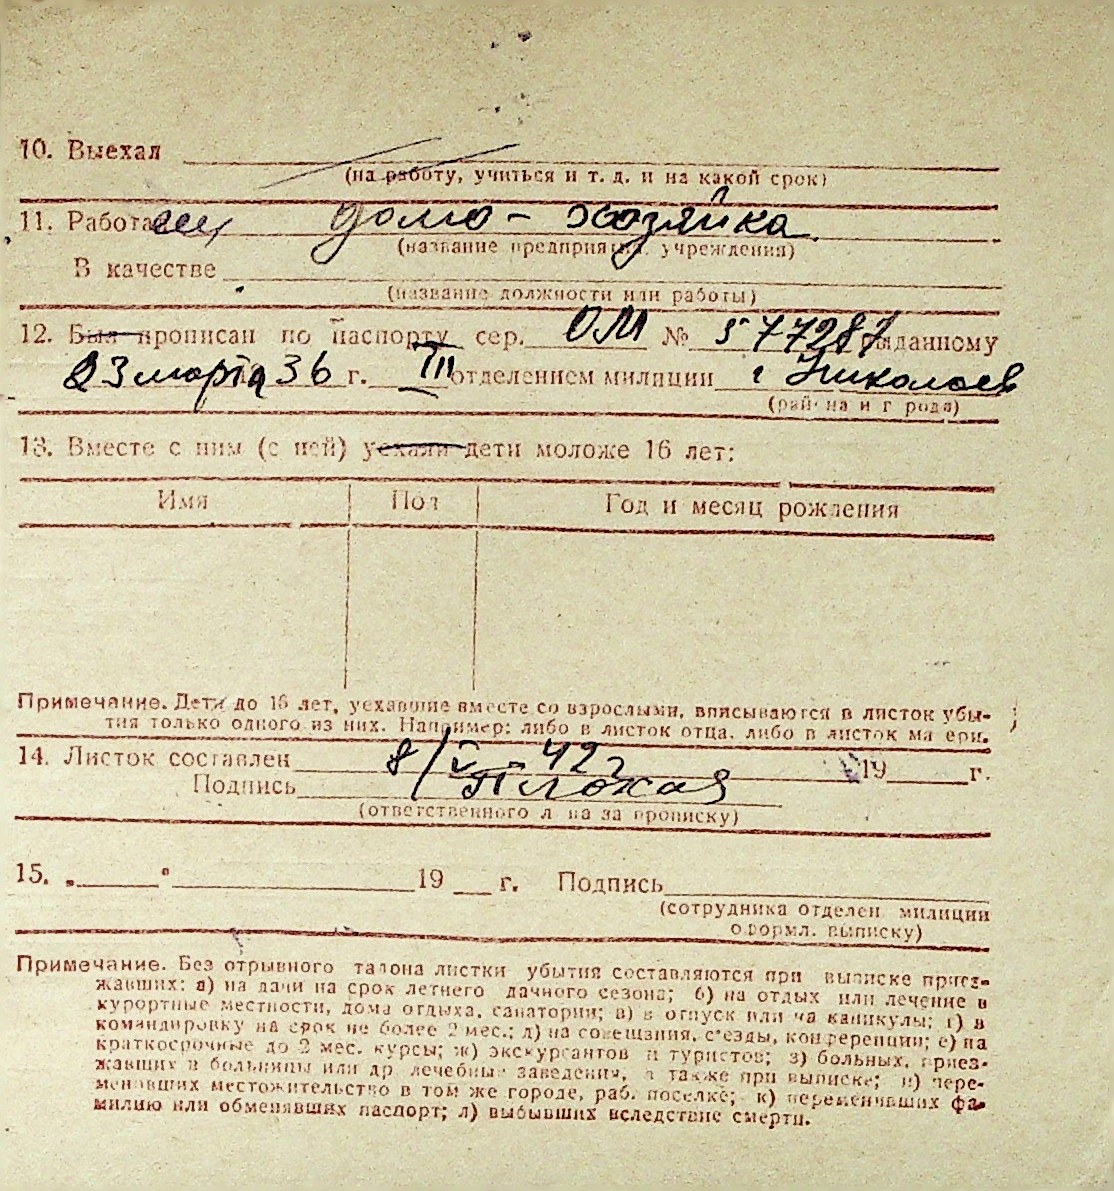 10. Выехал
(на работу, учиться и т. д. и на какой срок)
11. Работает домо-хозяйка
(название предприятия, учреждения)
В качестве
(название должности или работы)
12. Был прописан по паспорту сер. ОМ № 577287 выданному
23 марта 36 г. III отделением милиции г Николаев
(района и города)
13. Вместе с ним (с ней) уехали дети моложе 16 лет:
Имя Пол Год и месяц рождения
Примечание. Дети до 16 лет, уехавшие вместе со взрослыми, вписываются в листок убы-
тия только одного из них. Например: либо в листок отца, либо в листок матери.
14. Листок составлен 8/V - 42 г 19 г.
Подпись
(ответственного лица за прописку)
15. „ " 19 г. Подпись
(сотрудника отделен. милиции
оформл. выписку)
Примечание. Без отрывного талона листки убытия составляются при выписке приез-
жавших: а) на дачи на срок летнего дачного сезона; б) на отдых или лечение в
курортные местности, дома отдыха, санатории; в) в отпуск или на каникулы; г) в
командировку на срок не более 2 мес.; д) на совещания, съезды, конференции; е) на
краткосрочные до 2 мес. курсы; ж) экскурсантов и туристов; з) больных, приез-
жавших в больницы или др лечебные заведения, а также при выписке; и) пере-
менивших местожительство в том же городе, раб. поселке; к) переменивших фа-
милию или обменявших паспорт; л) выбывших вследствие смерти.